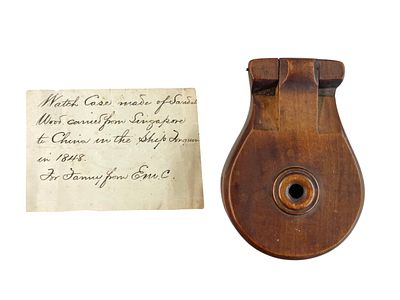 Watch Case made of Sandal
Wood carried from Singapore
to China in the Ship
in 1848.
For Fanny from Em. C.